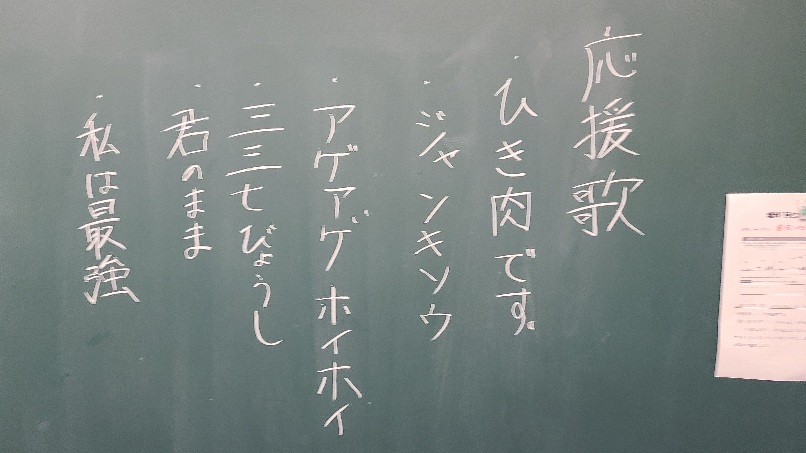 応援歌
・ひき肉です。
・ジャンキソウ
・アゲアゲホイホイ
・三三七びょうし
・君のまま
・私は最強